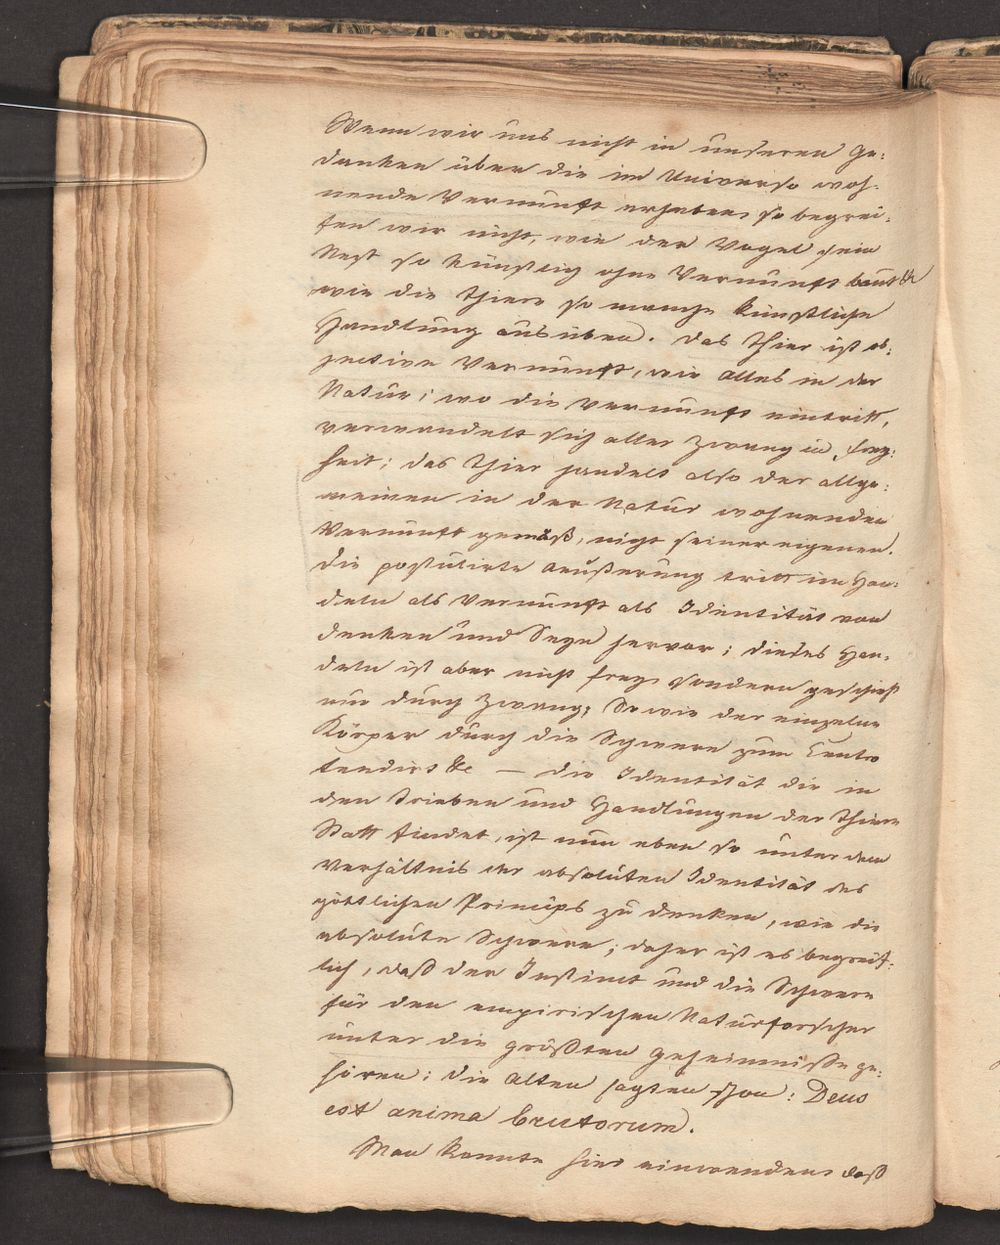 Wenn wir uns nicht in unseren Ge:
danken über die im Universo woh-
nende Vernunft erheben, so begrei:
fen wir nicht, wie der Vogel sein
Nest so künstlich ohne Vernunft baut &
wie die Thiere so manche künstliche
Handlung ausüben. Das Thier ist ob:
jective Vernunft, wie alles in der
Natur; wo die Vernunft eintritt,
verwandelt sich aller Zwang in Frey:
heit; das Thier handelt also der allge:
meinen in der Natur wohnenden
Vernunft gemäß, nicht seiner eigenen.
Die postulirte Aeußerung tritt im Han:
deln als Vernunft als Identität von
Denken und Seyn hervor; dieses Han-
deln ist aber nicht frey, sondern geschieht
nur durch Zwang, So wie der einzelne
Körper durch die Schwere zum Centro
tendirt &c — die Identität die in
den Trieben und Handlungen der Thiere
Statt findet, ist nun eben so unter dem
Verhältnis der absoluten Identität des
göttlichen Princips zu denken, wie die
absolute Schwere; daher ist es begreif:
lich, daß der Instinct und die Schwere
für den empirischen Naturforscher
unter die größten Geheimniße ge:
hören; die Alten sagten schon: Deus
est anima brutorum.
Man konnte hier einwenden, daß